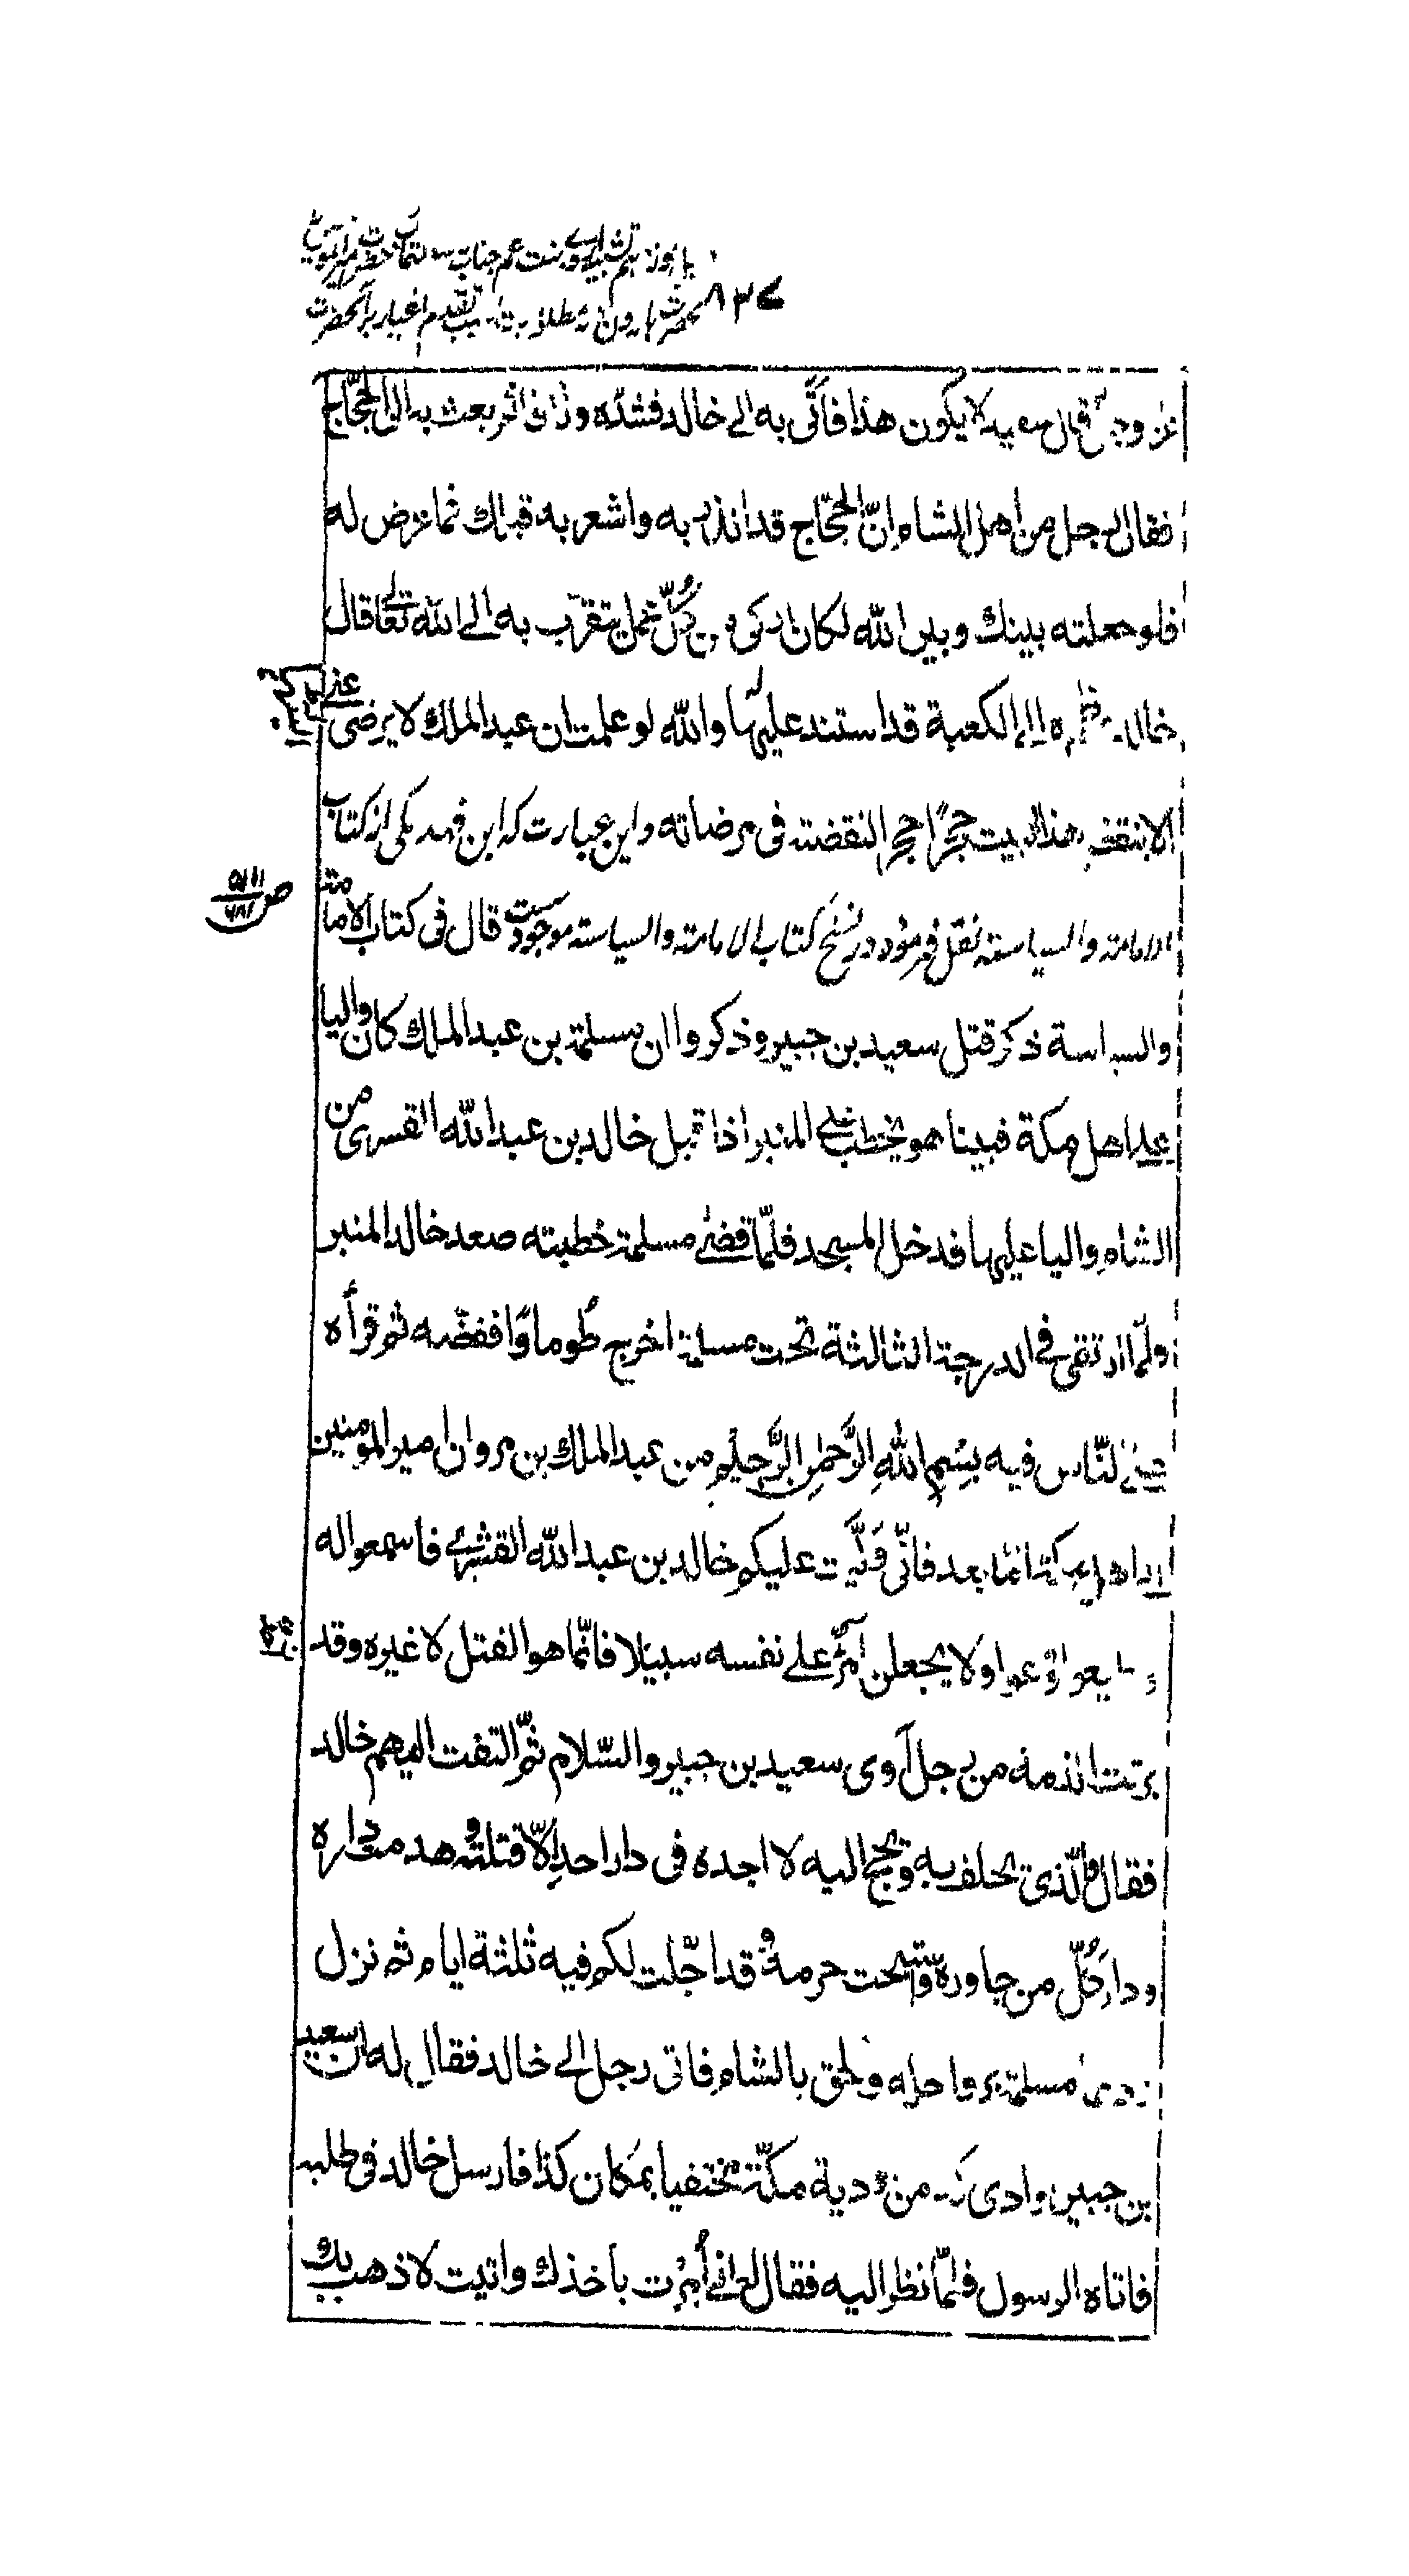 ۸۳۷
عز وجل قال سعيد لا يكون هذا فأتى به الى خالد فشده وثاقا ثم بعث به الى الحجّاج
فقال رجل من اهل الشام انّ الحجّاج قد انذر به واشعر به قبلك فما عرض له
فلو جعلته بينك وبين الله لكان ازكى من كلّ عمل يتقرّب به الى الله تعالى قال
خالد وظهره الى الكعبة قد استند عليها والله لو علمت ان عبد الملك لا يرضى عنى
الا بنقض هذا البيت حجرًا حجرا لنقضته فى مرضاته واين عبارت كه ابن فهد مكى از كتاب
الامامة والسياسته نقل فرموده در نسخ كتاب الامامته والسياسته موجودست قال فى كتاب الامامة
والسياسة ذكر قتل سعيد بن جبير وذكروا ان مسلمة بن عبد الملك كان واليا
على اهل مكة فبينا هو يخطب على المنبر اذ اقبل خالد بن عبد الله القسرى من
الشام واليا عليها فدخل المسجد فلمّا قضى مسلمة خطبته صعد خالد المنبر
ولمّا ارتقى فى الدرجة الثالثة تحت مسلمة اخرج طومارا ففضّه ثم قرأه
على النّاس فيه بِسْمِ اللهِ الرَّحْمٰنِ الرَّحِيْمِ من عبد الملك بن مروان امير المومنين
الى اهل مكة امّا بعد فانّى وَلَّيت عليكم خالد بن عبد الله القشرى فاسمعوا له
واطيعوا ولا يجعلن امرؤ على نفسه سبيلا فانّما هو القتل لا غيره وقد
برئت الذمة من رجل آوى سعيد بن جبير والسّلام ثمّ التفت اليهم خالد
فقال والّذى يحلف به ويحج اليه لا اجده فى دار احد الّا قتلته وهدمت داره
ودار كُلّ من جاوره واستبحت حرمة وقد اجّلت لكم فيه ثلثة ايام ثم نزل
مسلمة برواحله ولحق بالشام فاتى رجل الى خالد فقال له ان سعيد
بن جبير بوادى من اودية مكّة مختفيا بمكان كذا فارسل خالد فى طلبه
فاتاه الرسول فلمّا نظر اليه فقال له انى أُمِرْت بأخذك واتيت لاذهب بك